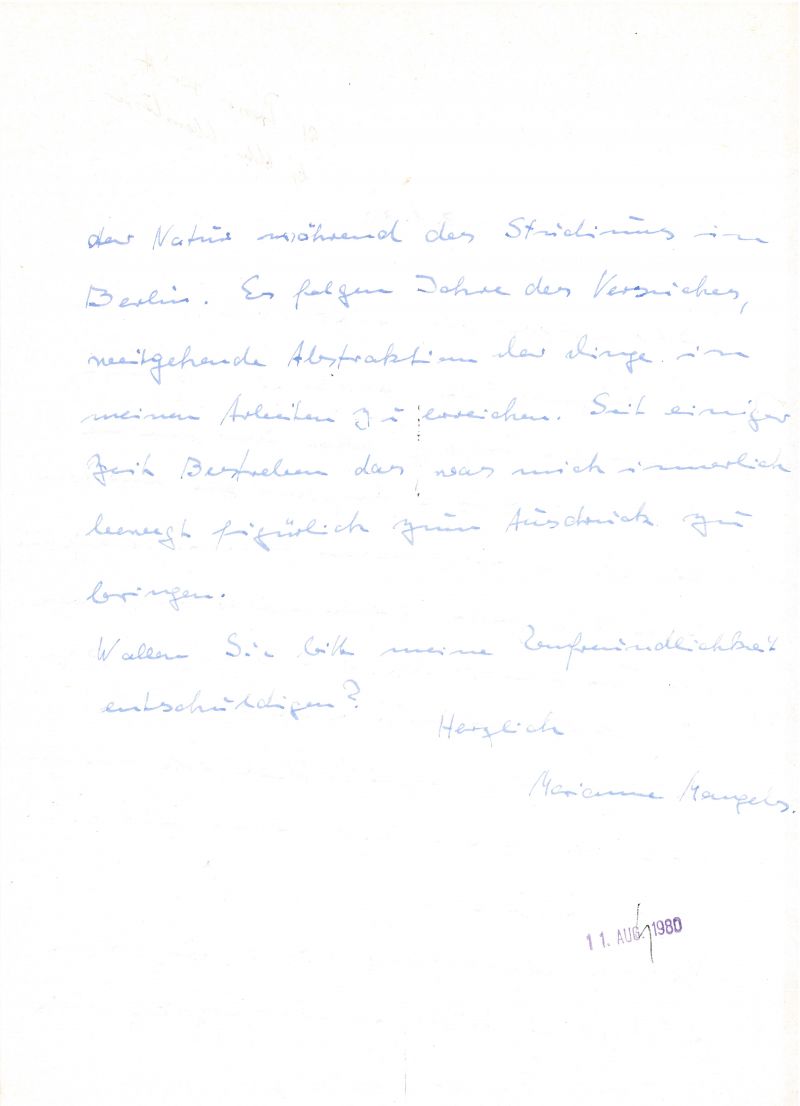 der Natur während des Studiums in
Berlin. Es folgen Jahre des Versuches,
weitgehende Abstraktion der Dinge in
meinen Arbeiten zu erreichen. Seit einiger
Zeit Bestreben das, was mich innerlich
bewegt figürlich zum Ausdruck zu
bringen.
Wollen Sie bitte meine Unfreundlichkeit
entschuldigen?
Herzlich
Marianne Mangels.
11. AUG. 1980